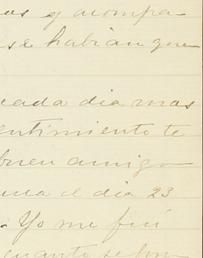 os y acompa-
se habian que
cada dia mas
entimiento te
buen amigo
una el dia 23
. Yo me fui
cuanto se